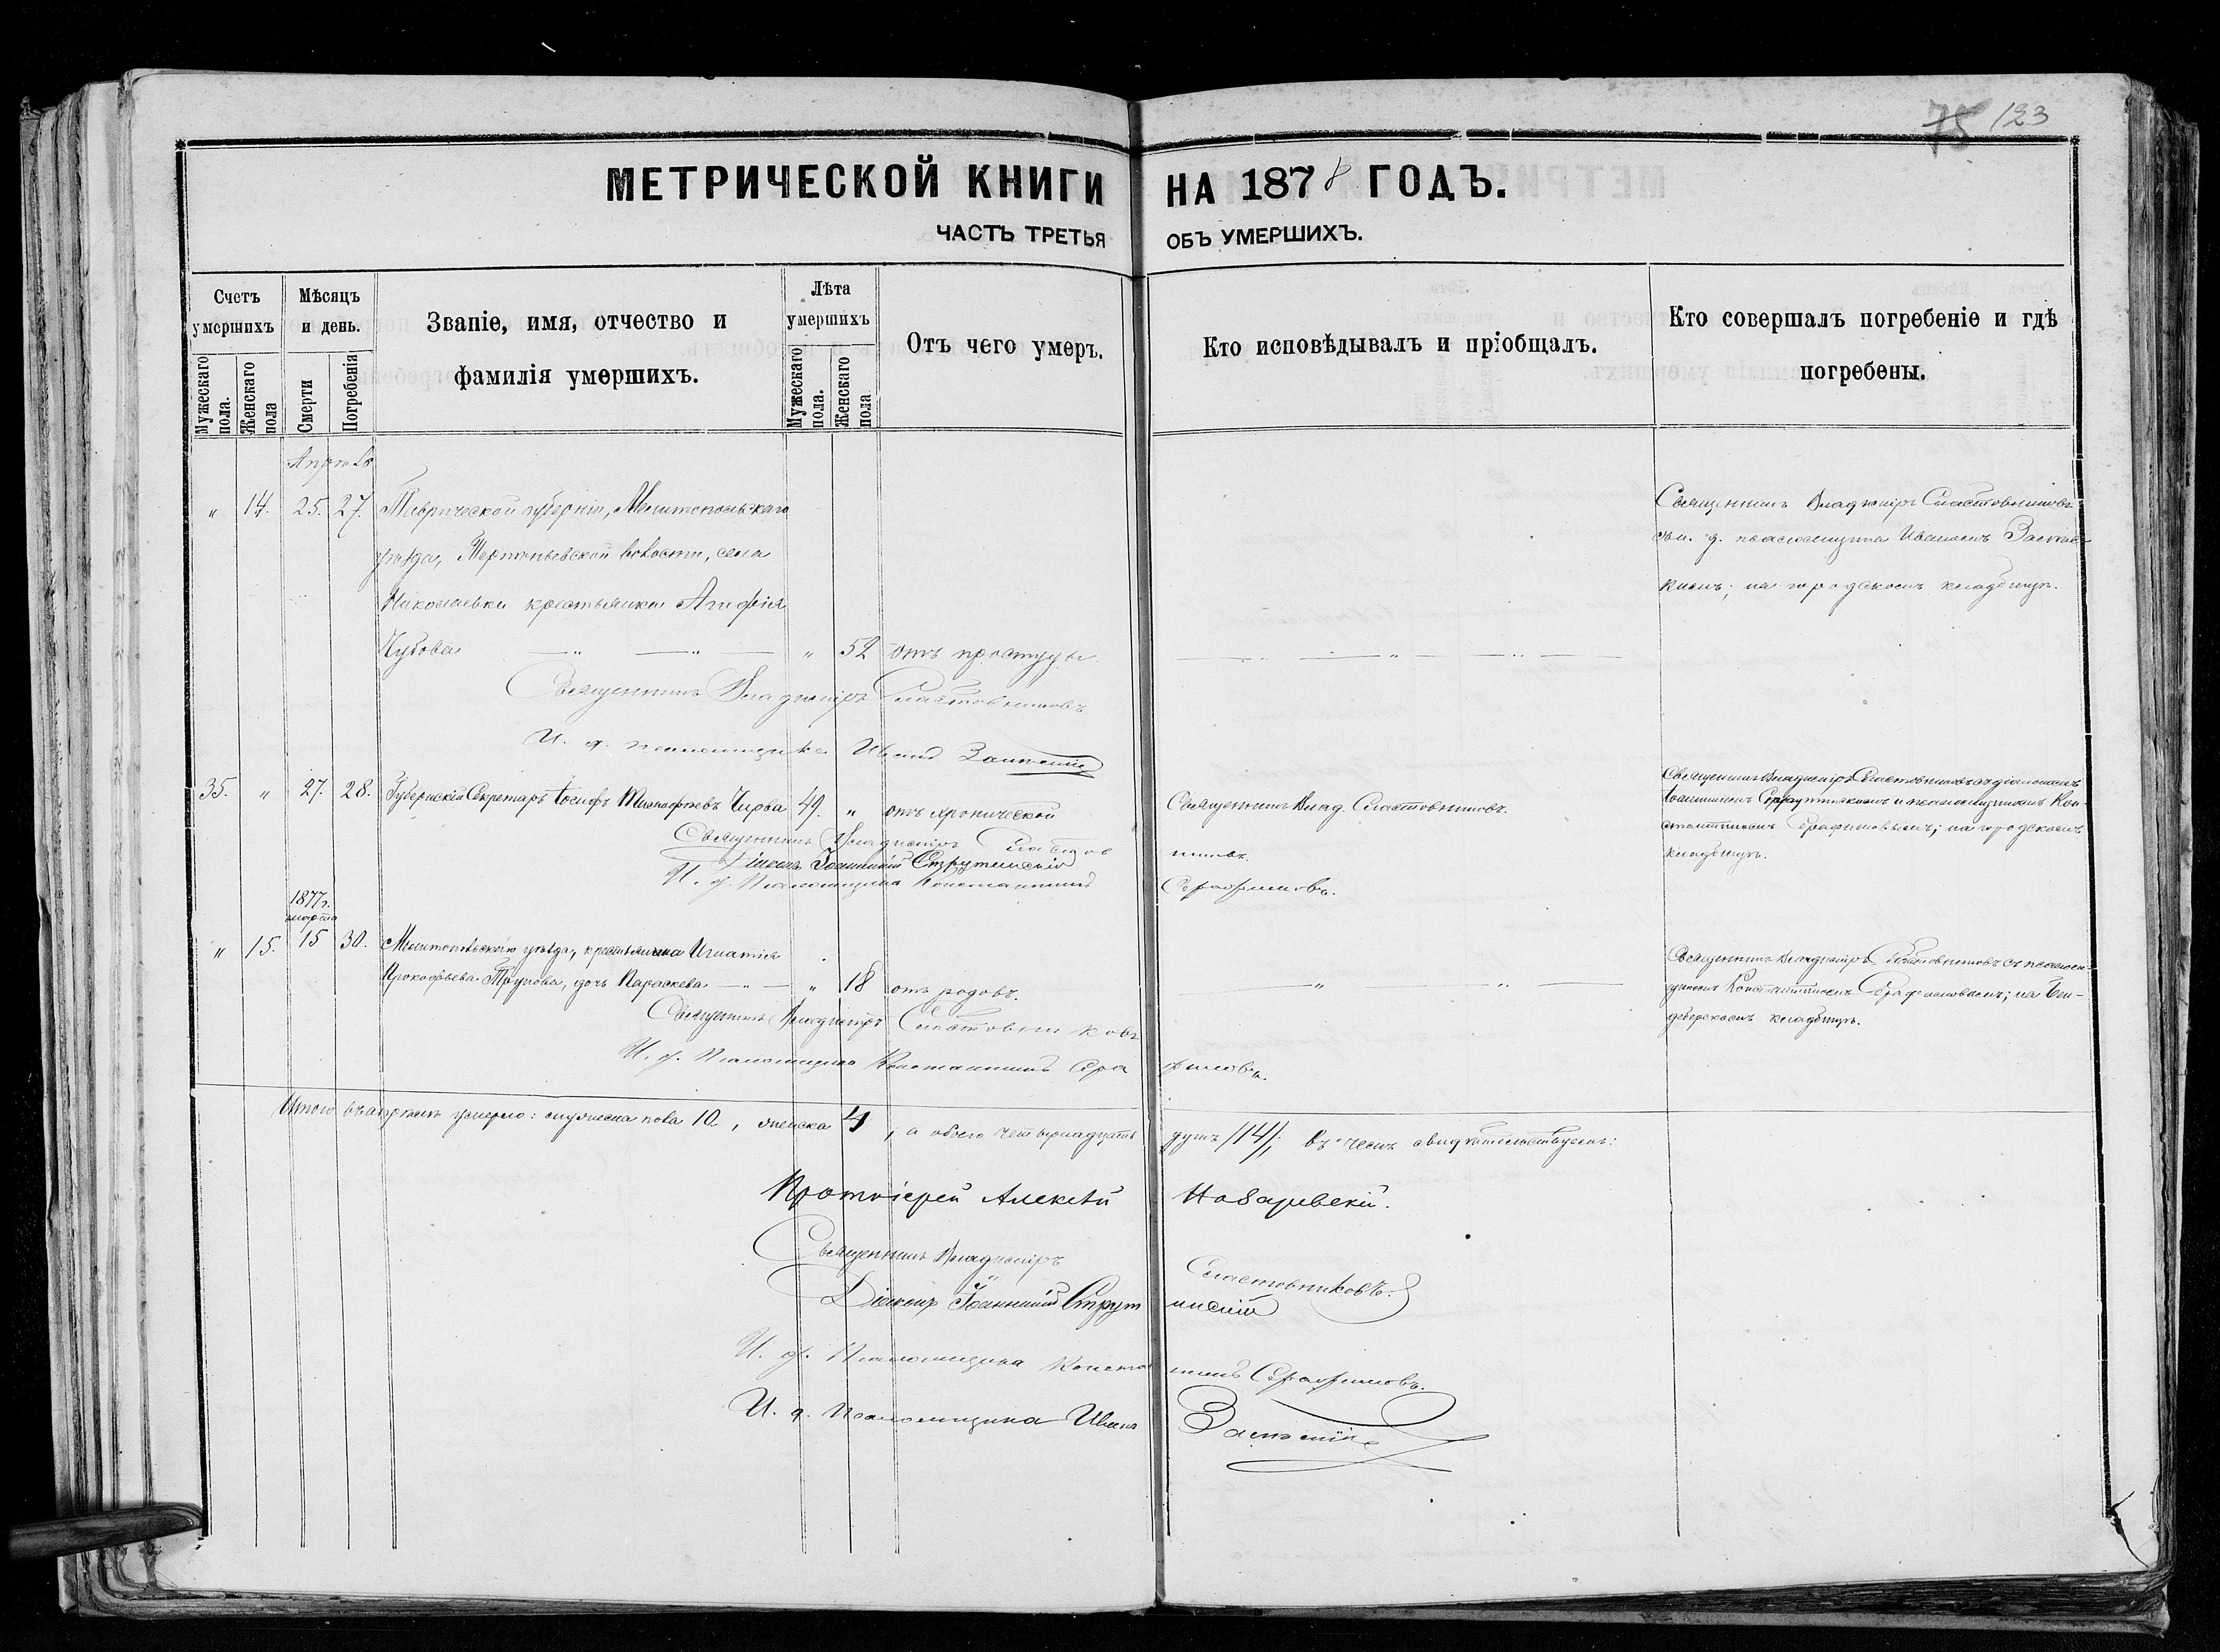 75 123
МЕТРИЧЕСКОЙ КНИГИ НА 1878 ГОДЪ.
ЧАСТЬ ТРЕТЬЯ ОБЪ УМЕРШИХЪ.
Счетъ умершихъ
Мужескаго пола.
Женскаго пола
Мѣсяцъ и день.
Смерти
Погребенія
Званіе, имя, отчество и
фамилія умершихъ.
Лѣта умершихъ
Мужескаго пола.
Женскаго пола
Отъ чего умеръ.
Кто исповѣдывалъ и пріобщалъ.
Кто совершалъ погребеніе и гдѣ
погребены.
Апрѣль
" 14. 25. 27. Таврической губерніи, Мелитопольскаго
уѣзда, волости, села
Николаевки крестьянка Агафія
" 52 отъ простуды
Священникъ Владиміръ Сластовниковъ
и. д. псаломщика Иваномъ
на городскомъ кладбищѣ.
Священникъ Владиміръ Сластовниковъ
И. д. псаломщика Иванъ
35. " 27. 28. Губернскій Секретарь Іосифъ Чирва 49. " отъ хронической
Священникъ Влад. Сластовниковъ.
Священникъ Владиміръ Сластовниковъ съ діакономъ
и псаломщикомъ Кон-
стантиномъ Серафимовымъ; на городскомъ
кладбищѣ.
Священникъ Владиміръ Сластов никовъ.
Діаконъ Іоанникій Струтинскій
И. д. Псаломщика Константинъ Серафимовъ.
1877 г.
марта
" 15. 15 30. Мелитопольскаго уѣзда, крестьянина Игнатія
Прокофьева дочь Параскева " 18 отъ родовъ.
Священникъ Владиміръ Сластовниковъ съ псаломщикомъ Константиномъ Серафимовымъ; на
кладбищѣ.
Священникъ Владиміръ Сластовниковъ
И. д. Псаломщика Константинъ Сера фимовъ.
Итого въ апрѣлѣ умерло: мужеска пола 10, женска 4, а обоего четырнадцать душъ /14/, въ чемъ свидѣтельствуемъ:
Протоіерей Алексѣй
Священникъ Владиміръ Сластовниковъ.
Діаконъ Іоанникій Струт инскій
И. д. Псаломщика Конста нтинъ Серафимовъ.
И. д. Псаломщика Иванъ